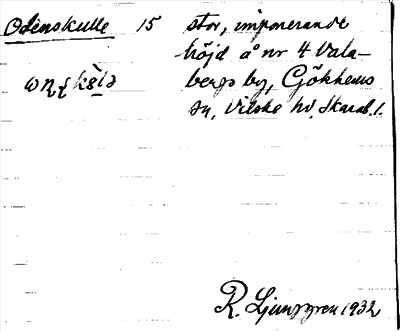 Odenskulle 15 stor, imponerande
höjd å nr 4 Vala-
bergs by, Gökhems
sn, Vilske hd, Skarab. l.
R. Ljunggren 1932